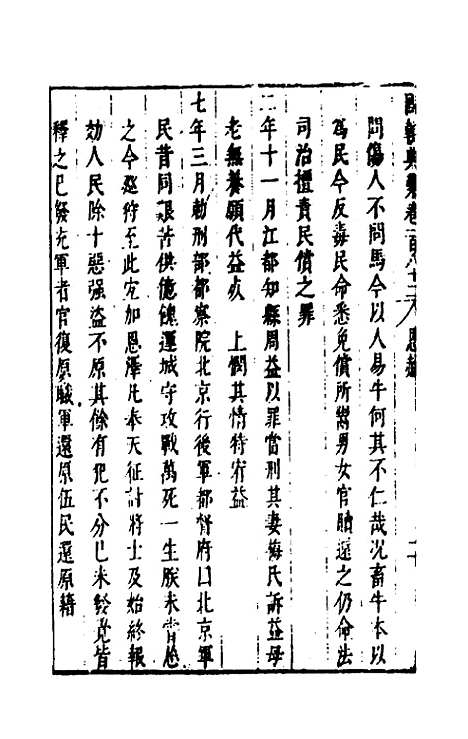 國朝典彙卷一百八十二 恩赦
問傷人不問馬今以人易牛何其不仁哉况畜牛本以
爲民今反毒民命悉免償所鬻男女官贖還之仍命法
司治擅責民償之罪
二年十一月江都知縣周益以罪當刑其妻梅氏訴益母
老無養願代益 上憫其情特宥益
七年三月勅刑部都察院北京行後軍都督府曰北京軍
民昔同艱苦供億餽運城守攻戰萬死一生朕未嘗忘
之今廵狩至此宐加恩澤凡奉天征討將士及始終報
効人民除十惡强盗不原其餘有犯不分已未發覺皆
釋之已發充軍者官復原職軍還原伍民還原籍